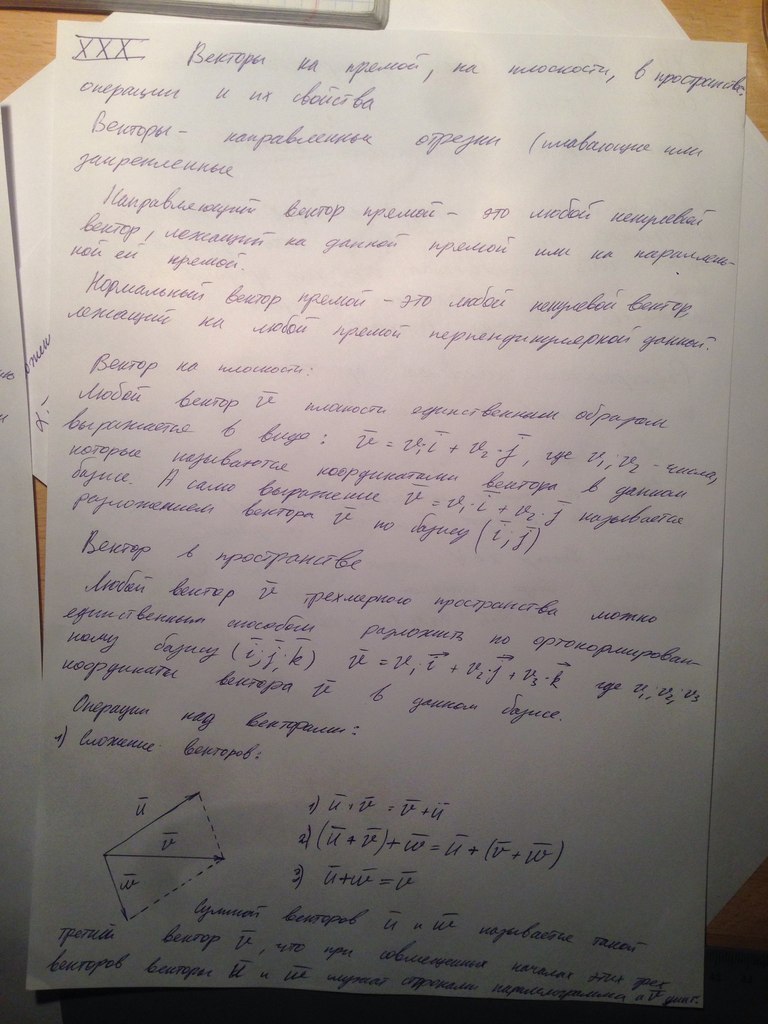 XXX Векторы на прямой, на плоскости, в пространстве.
операции и их свойства
Векторы - направленные отрезки (плавающие или
закрепленные
Направляющий вектор прямой - это любой ненулевой
вектор, лежащий на данной прямой или на параллель-
ной ей прямой.
Нормальный вектор прямой - это любой ненулевой вектор
лежащий на любой прямой перпендикулярной данной.
Вектор на плоскости:
Любой вектор v̅ плоскости единственным образом
выражается в виде: v̅ = v₁·i̅ + v₂·j̅, где v₁; v₂ - числа,
которые называются координатами вектора в данном
базисе. А само выражение v̅ = v₁·i̅ + v₂·j̅ называется
разложением вектора v̅ по базису (i̅; j̅)
Вектор в пространстве
Любой вектор v̅ трехмерного пространства можно
единственным способом разложить по ортонормирован-
ному базису (i̅; j̅; k̅) v̅ = v₁·i⃗ + v₂·j⃗ + v₃·k⃗ где v₁; v₂; v₃
координаты вектора v̅ в данном базисе.
Операции над векторами:
1) Сложение векторов:
u̅
v̅
w̅
1) u̅ + v̅ = v̅ + u̅
2) (u̅ + v̅) + w̅ = u̅ + (v̅ + w̅)
3) u̅ + w̅ = v̅
Суммой векторов u̅ и w̅ называется такой
третий вектор v̅, что при совмещенных началах этих трех
векторов векторы u̅ и w̅ служат сторонами параллелограмма и v̅